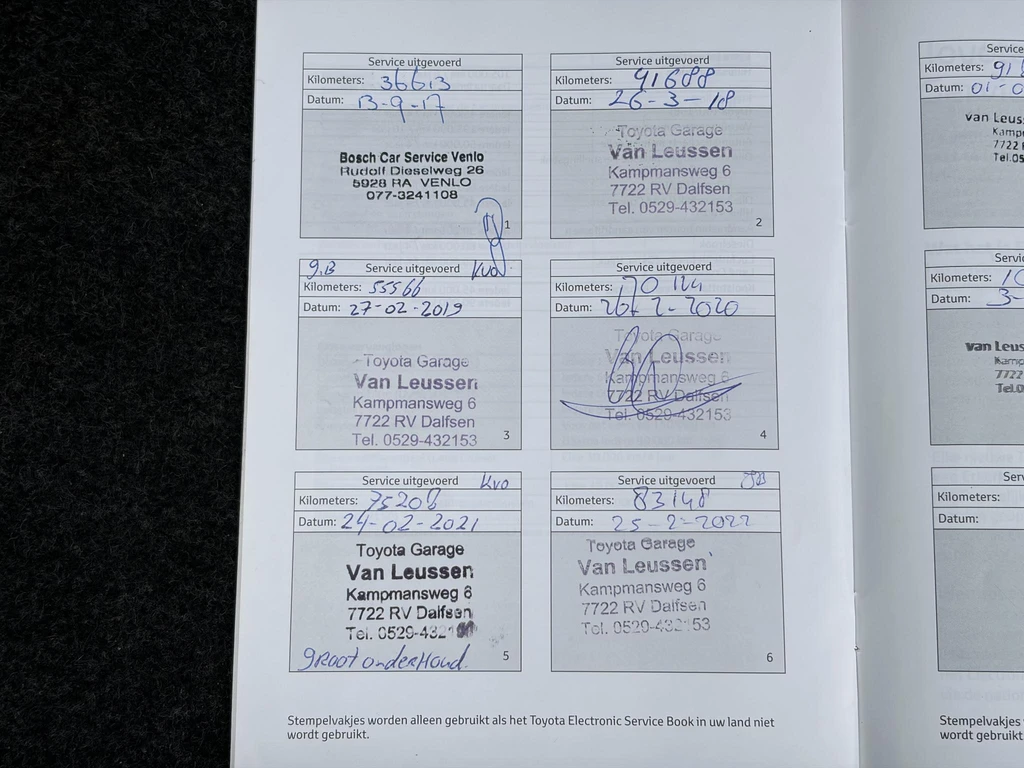 Service uitgevoerd
Kilometers: 36613
Datum: 13-9-17
Bosch Car Service Venlo
Rudolf Dieselweg 26
5928 RA VENLO
077-3241108
1
Service uitgevoerd
Kilometers: 41688
Datum: 26-3-18
Toyota Garage
Van Leussen
Kampmansweg 6
7722 RV Dalfsen
Tel. 0529-432153
2
g.B Service uitgevoerd Kvo
Kilometers: 55566
Datum: 27-02-2019
Toyota Garage
Van Leussen
Kampmansweg 6
7722 RV Dalfsen
Tel. 0529-432153
3
Service uitgevoerd
Kilometers: 70124
Datum: 26-2-2020
Toyota Garage
Van Leussen
Kampmansweg 6
7722 RV Dalfsen
Tel. 0529-432153
4
Service uitgevoerd Kvo
Kilometers: 75208
Datum: 24-02-2021
Toyota Garage
Van Leussen
Kampmansweg 6
7722 RV Dalfsen
Tel. 0529-432
groot onderHoud.
5
Service uitgevoerd
Kilometers: 83148
Datum: 25-2-2022
Toyota Garage
Van Leussen
Kampmansweg 6
7722 RV Dalfsen
Tel. 0529-432153
6
Stempelvakjes worden alleen gebruikt als het Toyota Electronic Service Book in uw land niet
wordt gebruikt.
Service
Kilometers: 91
Datum: 01-0
van Leus
Kamp
7722
Tel.05
Servi
Kilometers: 10
Datum: 3-
van Leus
Kamp
7722
Tel.0
Serv
Kilometers:
Datum:
Stempelvakjes
wordt gebruikt